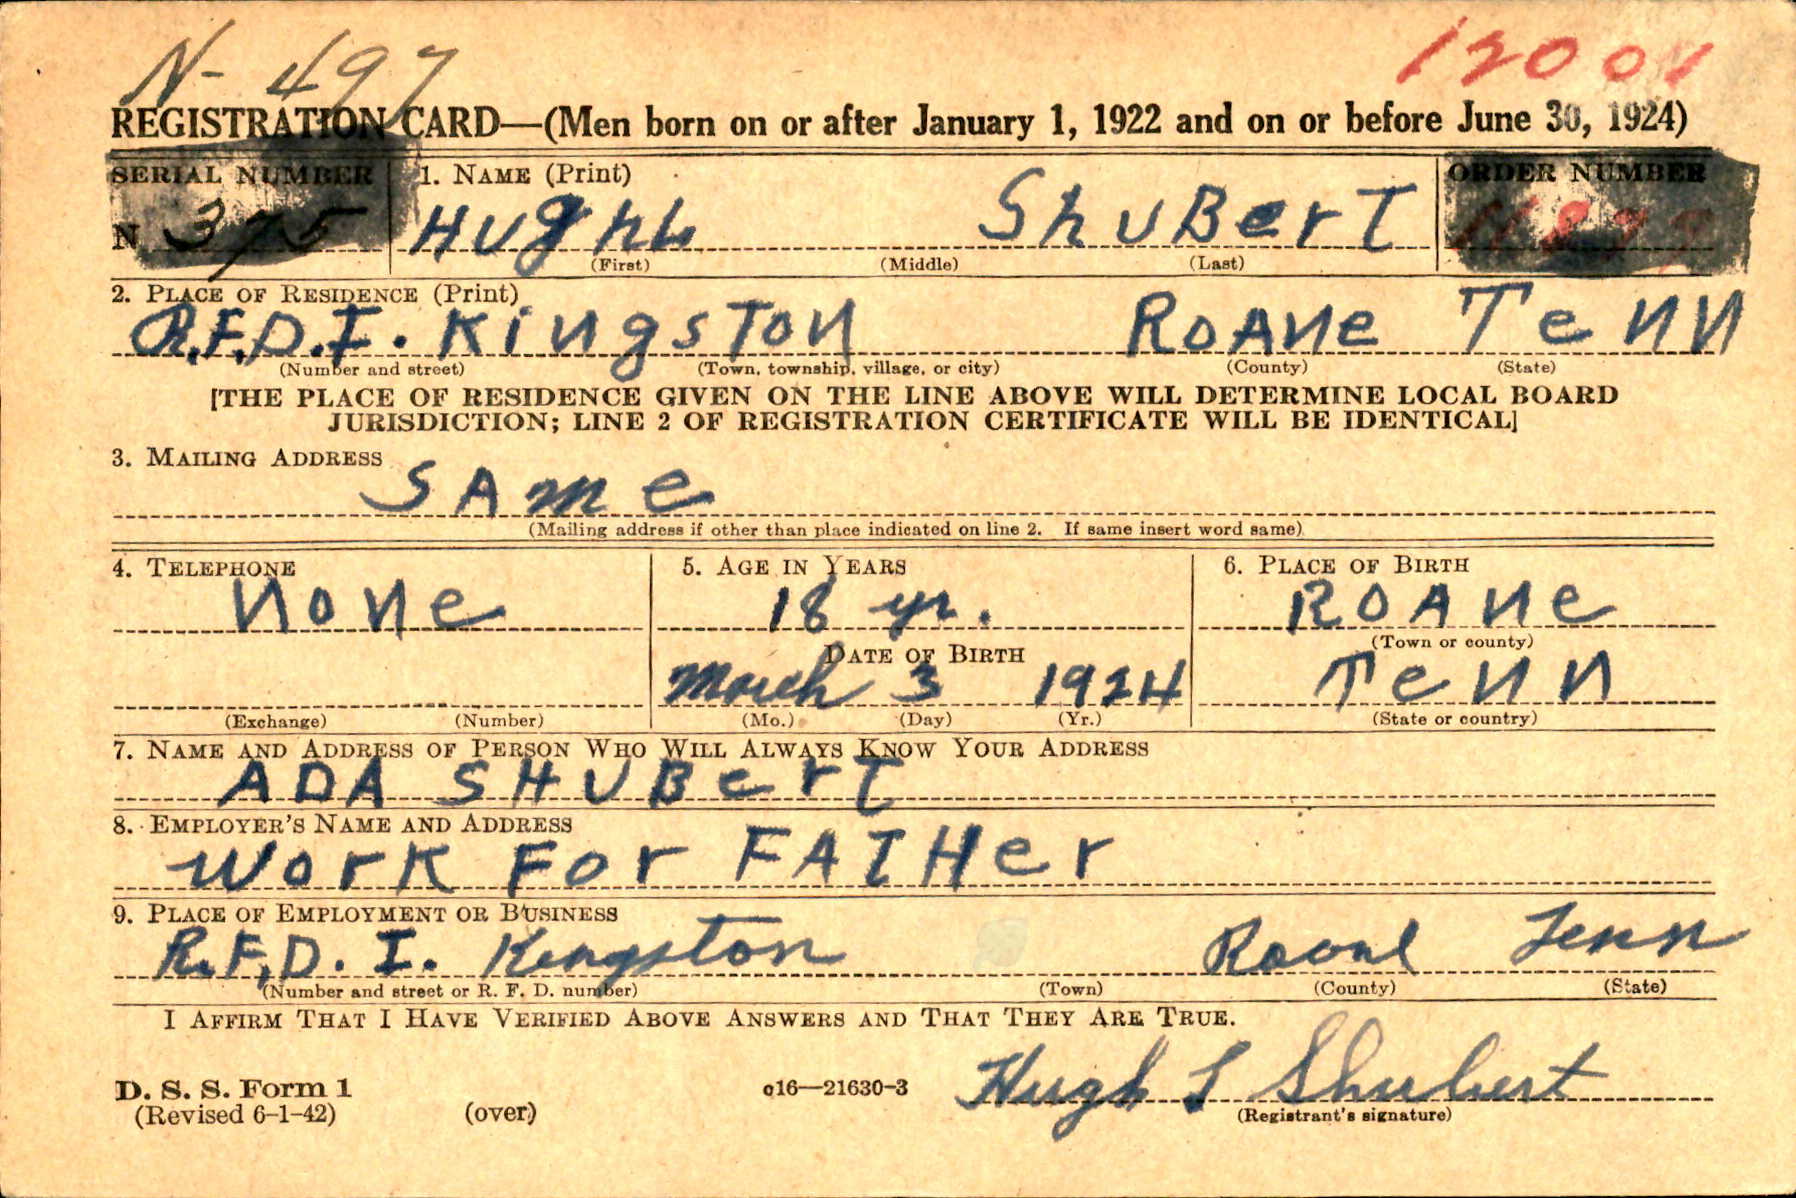 N- 497
12001
REGISTRATION CARD—(Men born on or after January 1, 1922 and on or before June 30, 1924)
SERIAL NUMBER
1. NAME (Print)
ORDER NUMBER
N 375
Hugh L ShuBerT
(First) (Middle) (Last)
2. PLACE OF RESIDENCE (Print)
R.F.D.I. KingsTon RoAne Tenn
(Number and street) (Town, township, village, or city) (County) (State)
[THE PLACE OF RESIDENCE GIVEN ON THE LINE ABOVE WILL DETERMINE LOCAL BOARD
JURISDICTION; LINE 2 OF REGISTRATION CERTIFICATE WILL BE IDENTICAL]
3. MAILING ADDRESS
SAme
(Mailing address if other than place indicated on line 2. If same insert word same)
4. TELEPHONE
5. AGE IN YEARS
6. PLACE OF BIRTH
None
18 yr.
ROANe
(Town or county)
DATE OF BIRTH
March 3 1924
Tenn
(Exchange) (Number)
(Mo.) (Day) (Yr.)
(State or country)
7. NAME AND ADDRESS OF PERSON WHO WILL ALWAYS KNOW YOUR ADDRESS
ADA SHUBerT
8. EMPLOYER'S NAME AND ADDRESS
Work For FATHer
9. PLACE OF EMPLOYMENT OR BUSINESS
R.F.D. I. Kingston Roane Tenn
(Number and street or R. F. D. number) (Town) (County) (State)
I AFFIRM THAT I HAVE VERIFIED ABOVE ANSWERS AND THAT THEY ARE TRUE.
Hugh L Shubert
D. S. S. Form 1
(Revised 6-1-42) (over) c16—21630-3 (Registrant's signature)